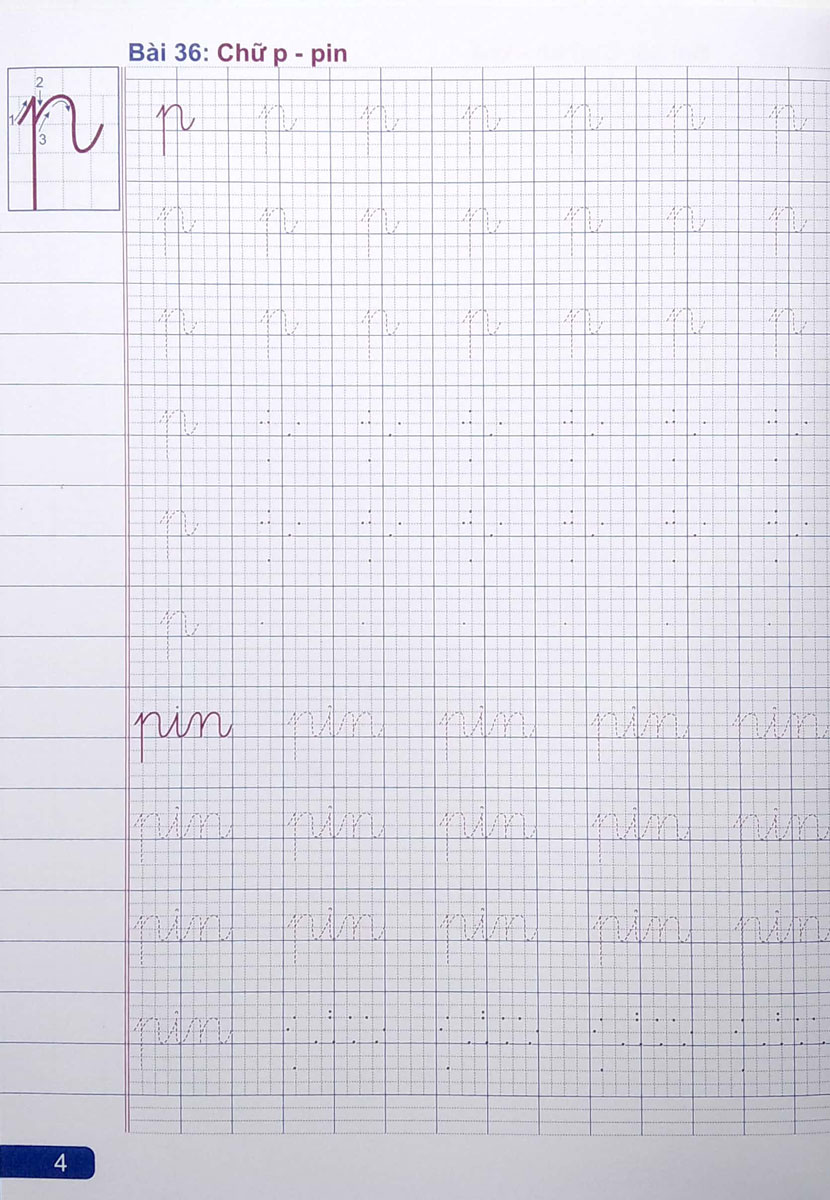 Bài 36: Chữ p - pin
2
1
3
p p p p p p p
p p p p p p p
p p p p p p p
p
p
p
pin pin pin pin pin
pin pin pin pin pin
pin pin pin pin pin
pin
4